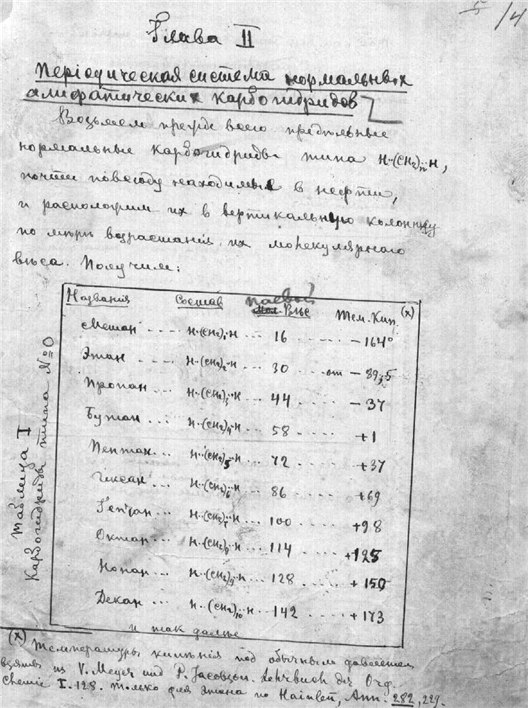 5 14
Глава II
Періодическая система нормальных
алифатических карбогидридов
Возьмем прежде всего предѣльные
нормальные карбогидриды типа H··(CH₂)ₙ··H,
почти повсюду находимые в нефти,
и расположим их в вертикальную колонку
по мѣрѣ возрастанія их молекулярнаго
вѣса. Получим:
Таблица I
Карбогидриды типа №0
Названія Состав паевой Вѣс Тем. Кип. (x)
Метан .... H··(CH₂)··H ... 16 ..... −164°
Этан .... H··(CH₂)₂··H ... 30 .... от −89,5
Пропан ... H··(CH₂)₃··H ... 44 .... −37
Бутан .... H··(CH₂)₄··H ... 58 .... +1
Пентан ... H··(CH₂)₅··H ... 72 .... +37
Гексан ... H··(CH₂)₆··H ... 86 .... +69
Гептан ... H··(CH₂)₇··H ... 100 .... +98
Октан ... H··(CH₂)₈··H ... 114 .... +125
Нонан ... H··(CH₂)₉··H ... 128 .... +150
Декан ... H··(CH₂)₁₀··H ... 142 .... +173
и так далѣе
(x) Температуры кипѣнія под обычным давленіем
взяты из V. Meyer und P. Jacobson. Lehrbuch der Org.
Chemie I. 128. Только для этана по Hainlen, Ann. 282, 229.